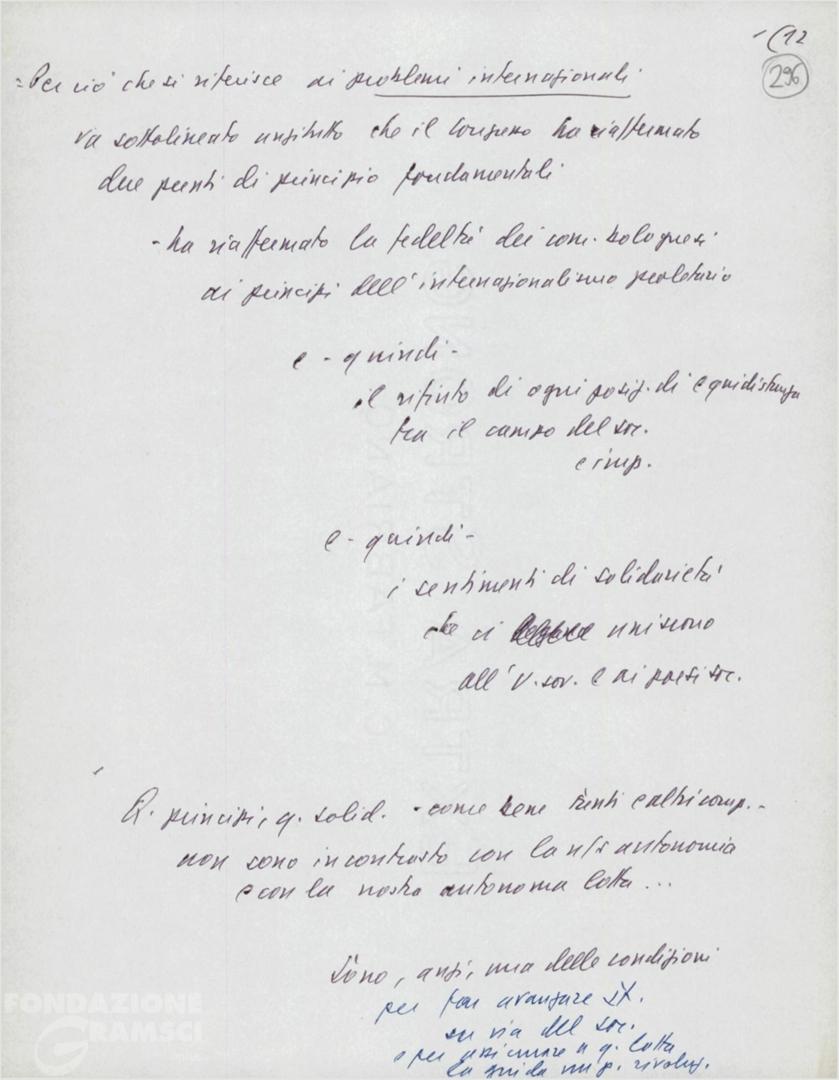 -(12
296
= Per ciò che si riferisce ai problemi internazionali
va sottolineato anzitutto che il Congresso ha riaffermato
due punti di principio fondamentali
- ha riaffermato la fedeltà dei com. bolognesi
ai principi dell'internazionalismo proletario
e - quindi -
il rifiuto di ogni posiz. di equidistanza
tra il campo del soc.
e imp.
e - quindi -
i sentimenti di solidarietà
che ci uniscono
all'U. sov. e ai paesi soc.
Q. principi, q. solid. - come bene Fanti e altri comp. -
non sono in contrasto con la n/s autonomia
e con la nostra autonoma lotta ...
Sono, anzi, una delle condizioni
per far avanzare It.
su via del soc.
e per assicurare a q. lotta
la guida un p. rivoluz.
FONDAZIONE
GRAMSCI